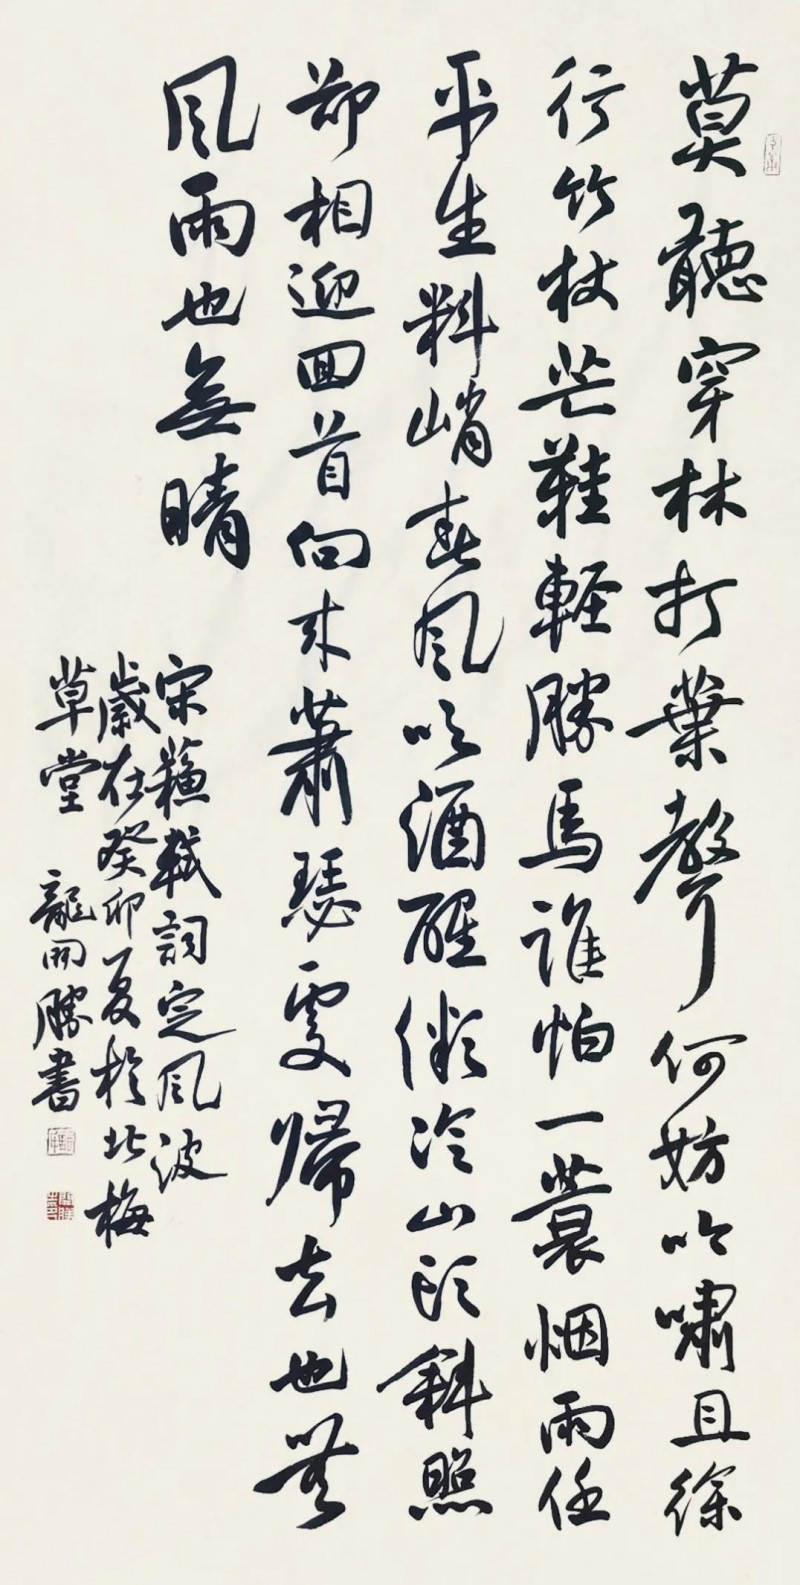 莫聽穿林打葉聲何妨吟嘯且徐
行竹杖芒鞋輕勝馬誰怕一蓑烟雨任
平生料峭春风吹酒醒微冷山头斜照
却相迎回首向来蕭瑟處歸去也无
风雨也無晴
宋蘇軾詞定风波
歲在癸卯夏於北梅
草堂 龍開勝書